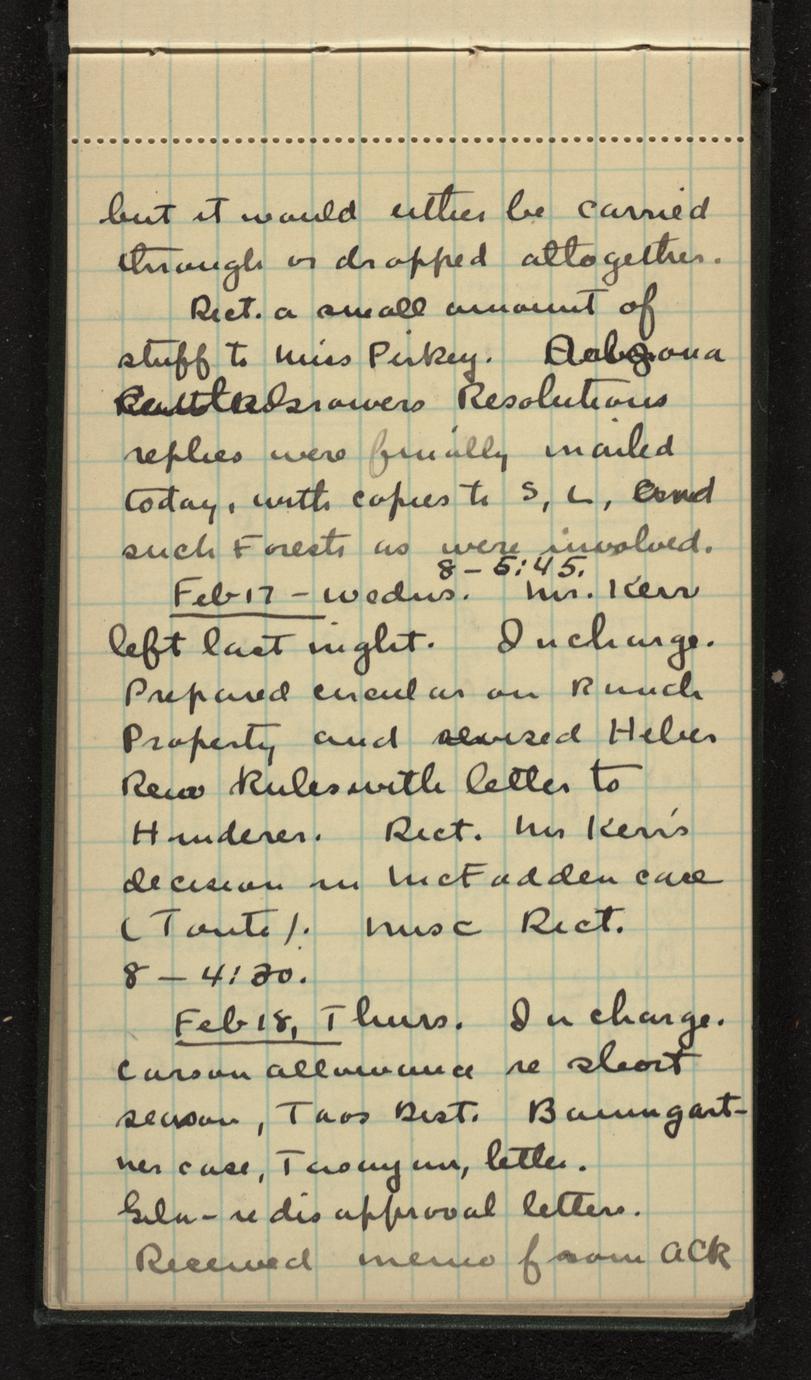 but it would either be carried
through or dropped altogether.
Dict. a small amount of
stuff to Miss Pirkey.
growers Resolutions
replies were finally mailed
today, with copies to S, L, and
such Forests as were involved.
8 – 5:45.
Feb 17 – Wednes. Mr. Kerr
left last night. In charge.
Prepared circular on Ranch
Property and revised Heber
Resv Rules with letter to
Hinderer. Dict. Mr Kerr's
decision in McFadden case
(Tonto). Misc Dict.
8 – 4:30.
Feb 18, Thurs. In charge.
Carson allowance re short
season, Taos Dist. Baumgart-
ner case, Tusayan, letter.
Gila – re disapproval letters.
Received memo from ACR